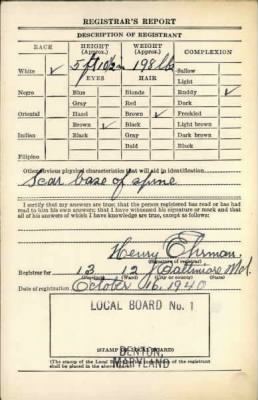 REGISTRAR'S REPORT
DESCRIPTION OF REGISTRANT
RACE HEIGHT (Approx.) WEIGHT (Approx.) COMPLEXION
White ✓ 5 ft 10½ in 198 lbs Sallow
EYES HAIR Light
Negro Blue Blonde Ruddy ✓
Gray Red Dark
Oriental Hazel Brown ✓ Freckled
Brown ✓ Black Light brown
Indian Black Gray Dark brown
Bald Black
Filipino
Other obvious physical characteristics that will aid in identification
Scar base of spine
I certify that my answers are true; that the person registered has read or has had
read to him his own answers; that I have witnessed his signature or mark and that
all of his answers of which I have knowledge are true, except as follows:
Henry Ehrman
(Signature of registrar)
Registrar for 13 12 Baltimore Md.
(Ward) (City or county) (State)
Date of registration October 16, 1940
LOCAL BOARD No. 1
DENTON,
MARYLAND
(STAMP OF LOCAL BOARD)
(The stamp of the Local Board of the registrant
shall be placed in the above space.)